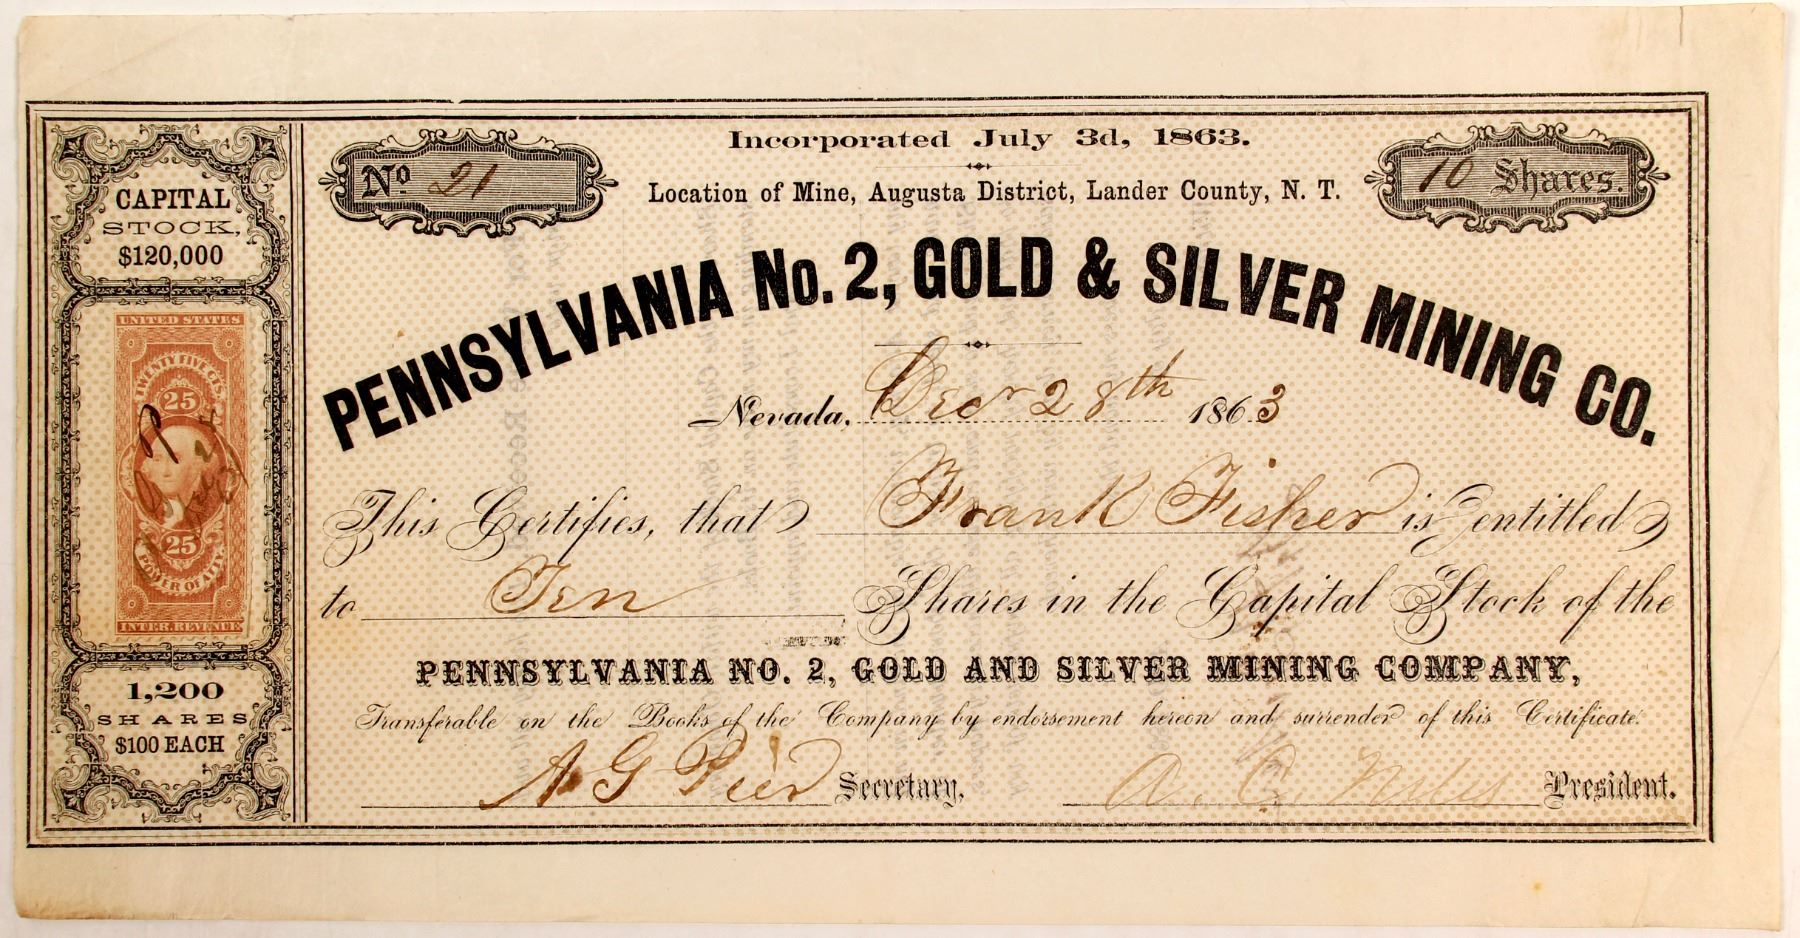 Incorporated July 3d, 1863.
No 21
Location of Mine, Augusta District, Lander County, N. T.
10 Shares.
PENNSYLVANIA No. 2, GOLD & SILVER MINING CO.
Nevada, Decr 28th 1863
This Certifies, that Frank Fisher is entitled
to Ten Shares in the Capital Stock of the
PENNSYLVANIA NO. 2, GOLD AND SILVER MINING COMPANY,
Transferable on the Books of the Company by endorsement hereon and surrender of this Certificate.
A G Secretary.
A. C. Niles President.
CAPITAL
STOCK,
$120,000
UNITED STATES
TWENTY FIVE CTS.
25
25
POWER OF ATTY.
INTER. REVENUE
1,200
SHARES
$100 EACH